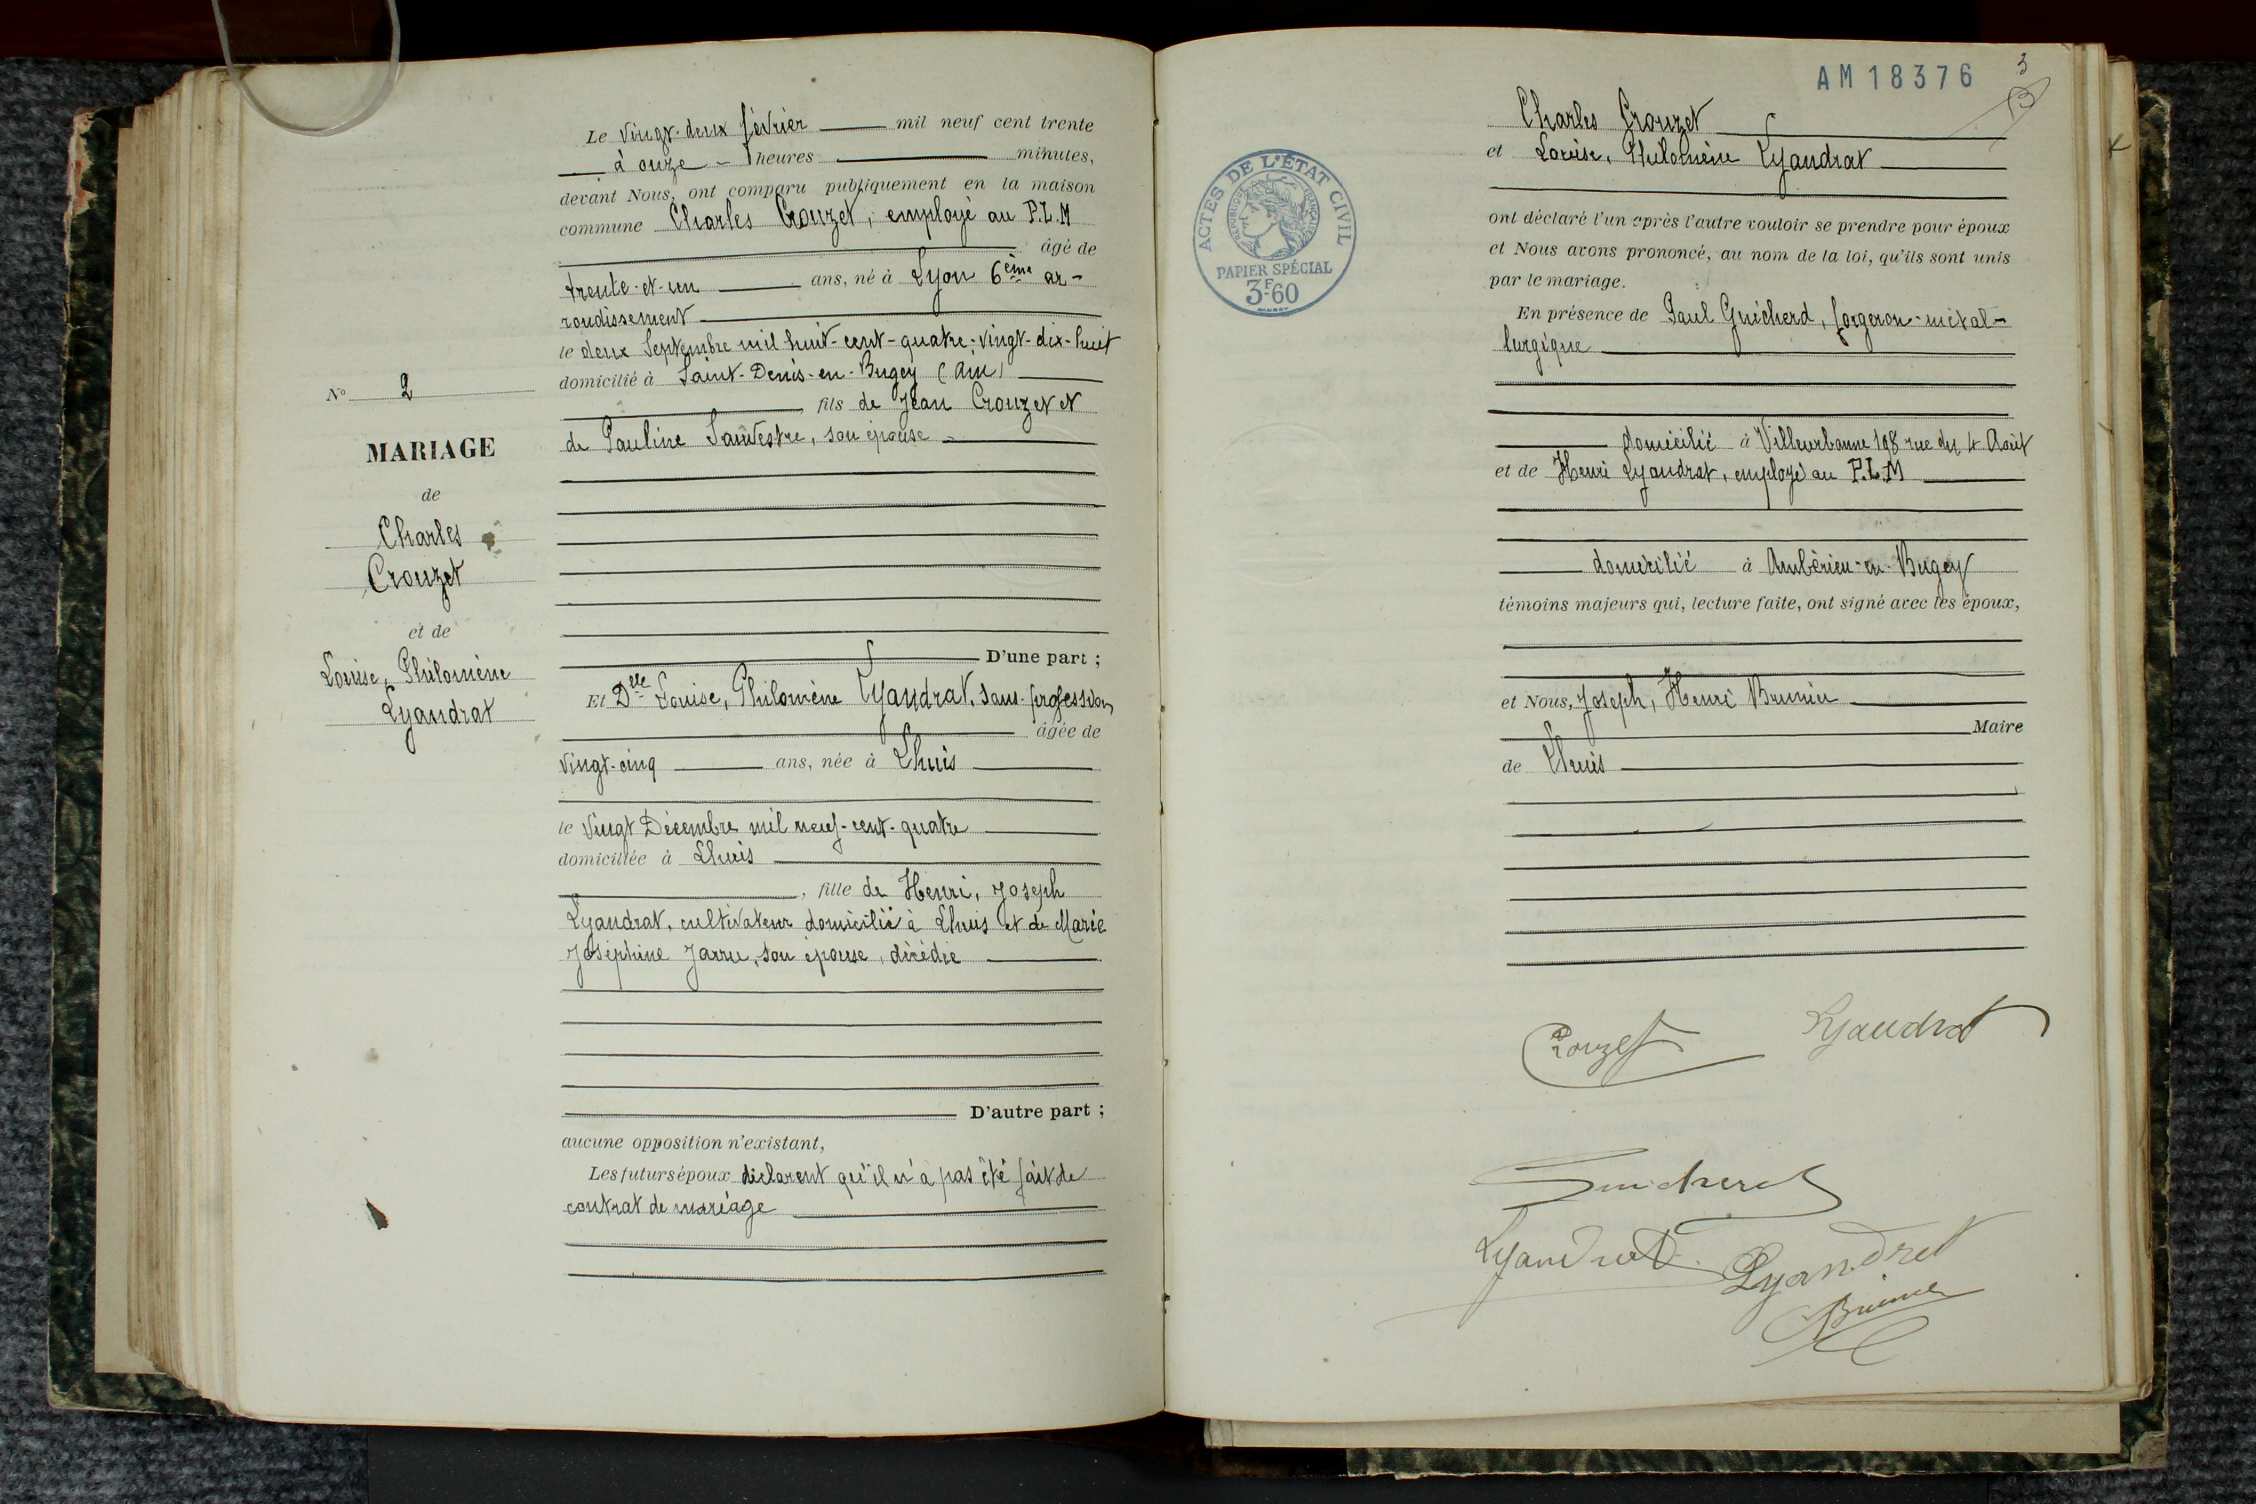 Le vingt-deux février mil neuf cent trente
à onze heures minutes,
devant Nous, ont comparu publiquement en la maison
commune Charles Crouzet, employé au P.L.M
âgé de
trente-et-un ans, né à Lyon 6ème ar-
rondissement
le deux Septembre mil huit-cent-quatre-vingt-dix-huit
domicilié à Saint-Denis-en-Bugey (Ain)
fils de Jean Crouzet et
de Pauline Sauvestre, son épouse
D'une part ;
No 2
MARIAGE
de
Charles
Crouzet
et de
Louise, Philomène
Lyaudrat
Et Dlle Louise, Philomène Lyaudrat, sans profession
âgée de
vingt-cinq ans, née à Lhuis
le vingt Décembre mil neuf-cent-quatre
domiciliée à Lhuis
, fille de Henri, Joseph
Lyaudrat, cultivateur domicilié à Lhuis et de Marie
Joséphine Jarru, son épouse, décédée
D'autre part ;
aucune opposition n'existant,
Les futurs époux déclarent qu'il n'a pas été fait de
contrat de mariage
AM 18376
3
ACTES DE L'ÉTAT CIVIL
RÉPUBLIQUE FRANÇAISE
PAPIER SPÉCIAL
3F60
Charles Crouzet
et Louise, Philomène Lyaudrat
ont déclaré l'un après l'autre vouloir se prendre pour époux
et Nous avons prononcé, au nom de la loi, qu'ils sont unis
par le mariage.
En présence de Paul Guicherd, forgeron-métal-
lurgique
domicilié à Villeurbanne 198 rue du 4 Août
et de Henri Lyaudrat, employé au P.L.M
domicilié à Ambérieu-en-Bugey
témoins majeurs qui, lecture faite, ont signé avec les époux,
et Nous, Joseph, Henri Brunier
Maire
de Lhuis
Crouzet Lyaudrat
Guicherd
Lyaudrat Lyaudrat
Brunier